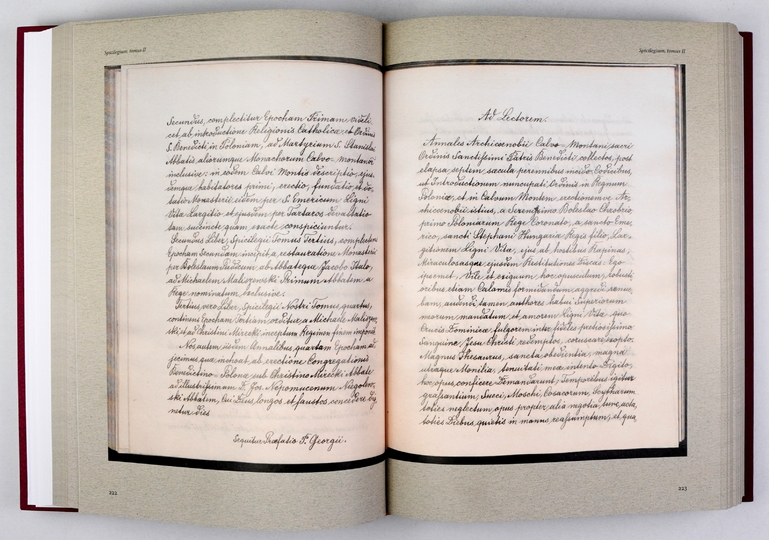 Spicilegium, tomus II
Secundus, complectitur Epocham Primam, videli-
cet, ab introductione Religionis Catholicæ et Ordinis
S. Benedicti in Poloniam, ad Martyrium S. Stanislai
Abbatis aliorumque Monachorum Calvo-montani
inclusive: in eodem Calvi Montis descriptio, ejus-
demque habitatores primi, erectio, fundatio et do-
tatio Monasterii, item per S. Emericum Ligni
Vitæ Largitio et ejusdem per Tartaros devastatio-
tam succincte quam, exacte conspiciuntur.
Secundus Liber, Spicilegii Tomus Tertius, complectens
Epocham Secundam incipit a restauratione Monasterii
per Boleslaum Pudicum, ab Abbateque Jacobo Italo,
ad Michaelem Maliszewski Primum Abbatem a
Rege nominatum, inclusive.
Tertius, vero Liber, Spicilegii Nostri Tomus, quartus,
continens Epocham tertiam orditur, a Michaele Malisze-
ski et ad Christini Mirecki inceptum Regimen finem imponit.
Nos autem iisdem Annalibus quartam Epocham ad-
jicimus quæ inchoat, ab erectione Congregationis
Benedictino-Polonæ sub Christino Mirecki Abbate
ad Illustrissimum D. Jos. Nepomucenum Niegolew-
ski Abbatem, Cui Deus, longos et faustos, concedere dig-
netur dies
Sequitur Præfatio P. Georgii.
222
Spicilegium, tomus II
Ad Lectorem.
Annales Archicœnobii Calvo-Montani, sacri
Ordinis Sanctissimi Patris Benedicti collectos, post
elapsa, septem, sæcula perennibus incido, Codicibus,
ut Introductionem nuncupati Ordinis in Regnum
Poloniæ, et in Calvum Montem, erectionemve Ar-
chicœnobii istius, a Serenissimo Boleslao Chrobrio,
primo Poloniarum Rege Coronato, a sancto Eme-
rico, sancti Stephani Hungariæ Regis filio, Lar-
gitionem Ligni Vitæ, ejus ab hostibus Rapinas,
Miraculosasque, ejusdem Restitutiones Lucas: Ego
ipsemet, Vile et exiguum, hoc opusculum, robusti-
oribus etiam Calamis formidandum, aggredi renue-
bam, audendi, tamen, authores habui Superiorum
meorum mandatum et amorem Ligni Vitæ, quo
Crucis Dominicæ fulgorem inter fideles pretiosissimo
Sanguine, Jesu Christi redemptos, coruscare exopto.
Magnus Thesaurus, sancta obedientia, magna
utraque Monilia, tenuitati meæ intento Digito,
hoc, opus, conficere Demandarunt, Temporibus igitur
grassantium, Sueci, Moschi, Cosacorum, Scytharum
toties neglectum, opus, propter, alia negotia, tunc, acta,
toties Diebus, quietis in manus, reassumptum, et, qua
223